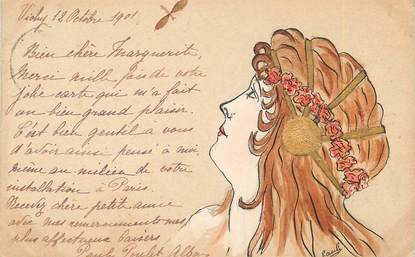 Vichy 12 Octobre 1901
Bien chère Marguerite,
Merci mille fois de votre
jolie carte qui m'a fait
un bien grand plaisir.
C'est bien gentil a vous
d'avoir ainsi pensé à moi
même au milieu de votre
installation à Paris.
Recevez chère petite amie
avec mes remerciements mes
plus affectueux baisers